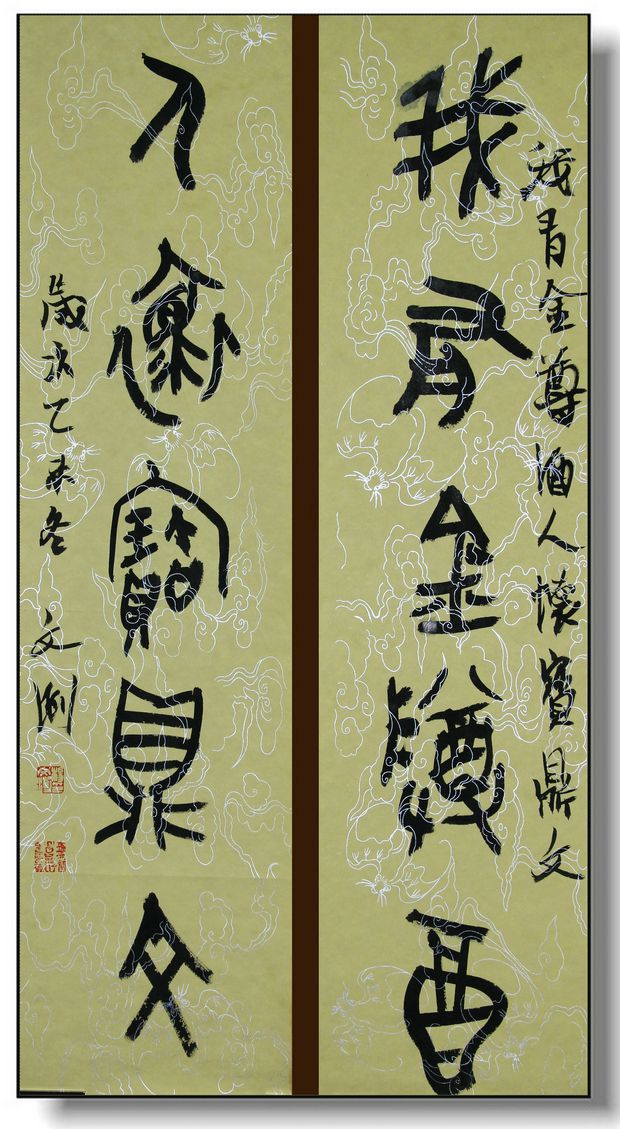 我有金尊酒人懷寶鼎文
我有金尊酒
人懷寶鼎文
歲次乙未冬 文